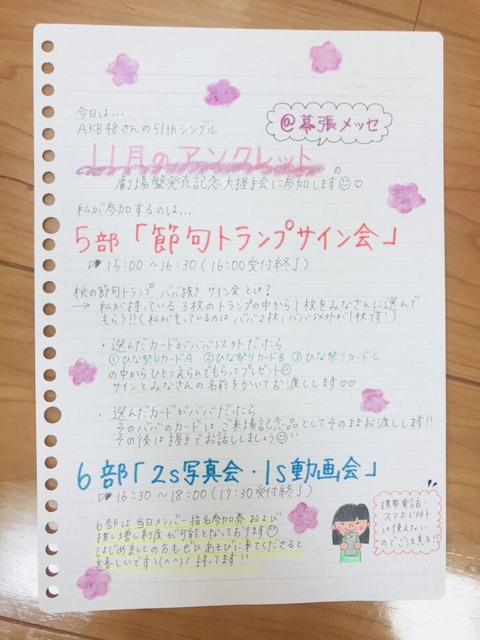 今日は...
AKB48さんの51thシングル
@幕張メッセ
11月のアンクレットの
劇場盤発売記念大握手会に参加します♡
私が参加するのは...
5部「節句トランプサイン会」
15:00〜16:30(16:00受付終了)
桃の節句トランプ ババ抜き サイン会 とは?
→ 私が持っている3枚のトランプの中から1枚をみなさんに選んで
もらう!!(私がもっているのは ババ2枚,ババ以外が1枚です)
・選んだカードがババ以外だったら
①ひな祭りカードA ②ひな祭りカードB ③ひな祭りカードC
の中からひとつえらんでもらってプレゼント
サインとみなさんの名前をかいてお渡しします♡♡
・選んだカードがババだったら
そのババのカードは ご来場記念品としてそのままお渡しします!!
その後は握手でお話ししましょう!!
6部「2s写真会・1s動画会」
16:30〜18:00(17:30受付終了)
6部は当日メンバー指名参加券および
推し増し制度が可能となっております
はじめましての方もぜひあそびに来てくださると
嬉しいです\(^^)/ 待ってます!!
携帯電話・
スマホ以外
は使えない
のでご注意を!!